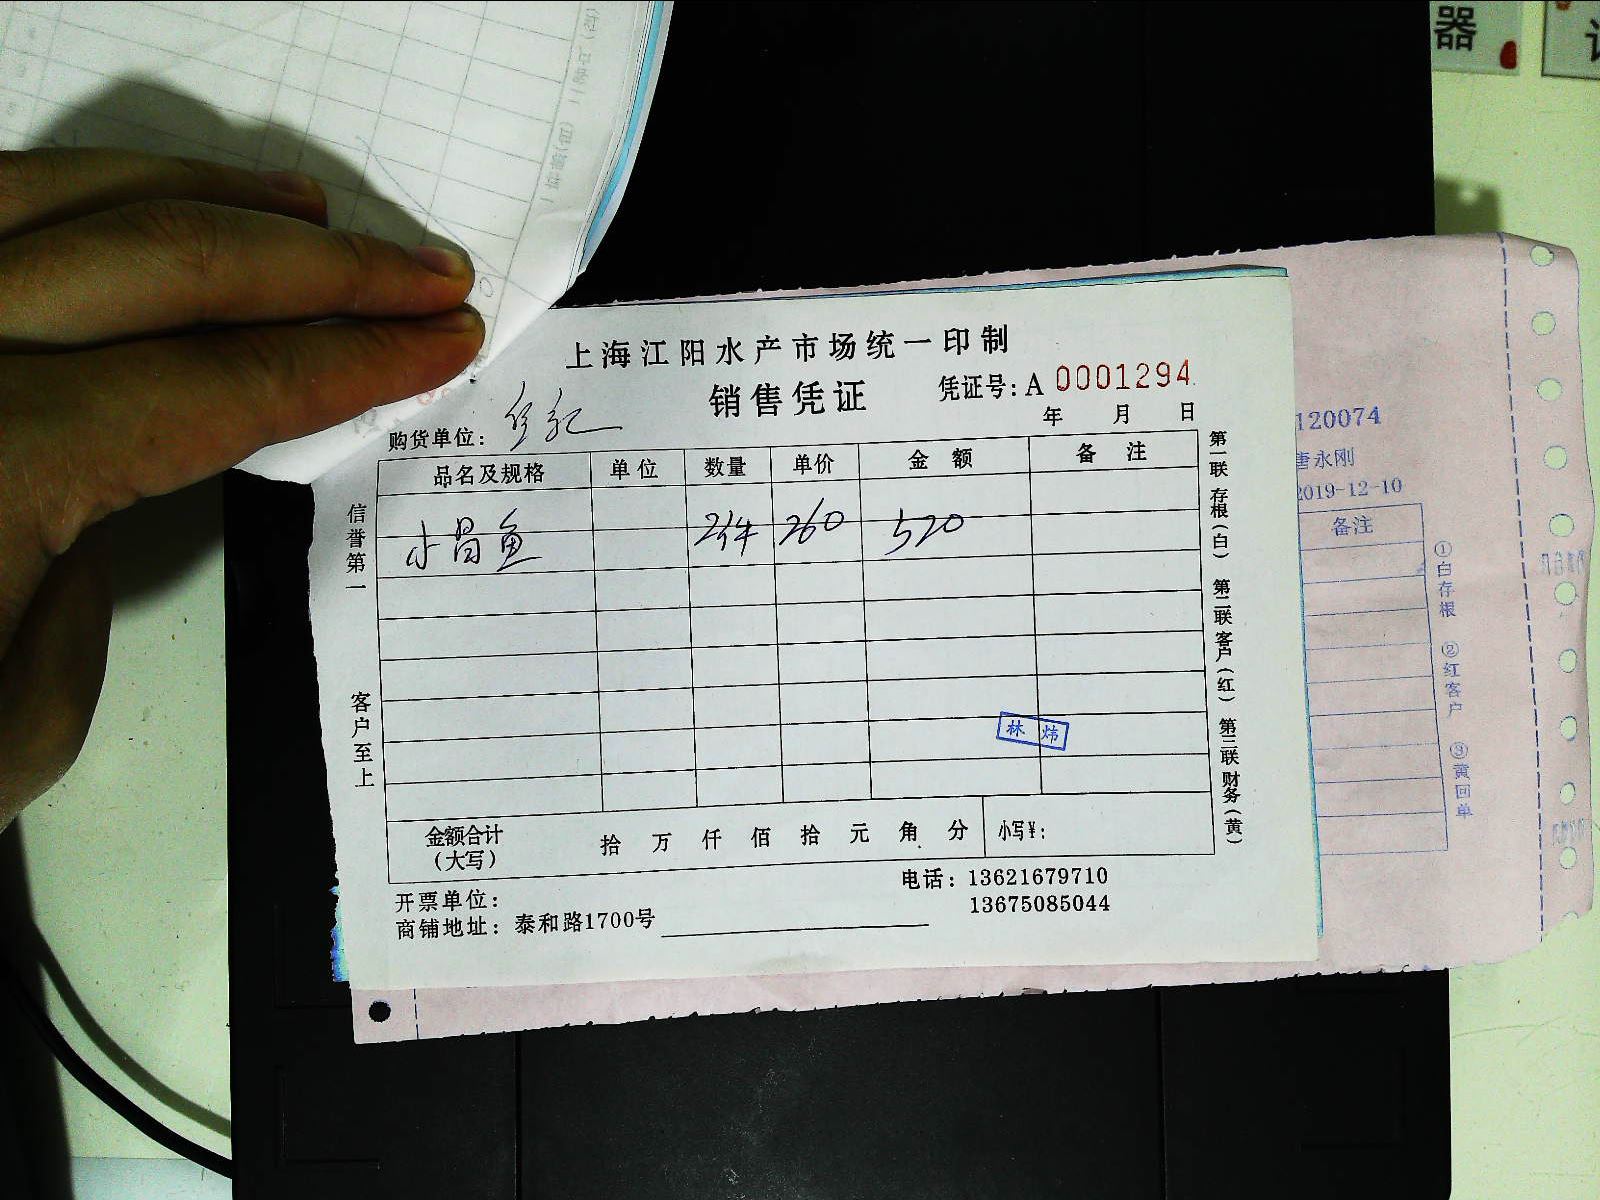 器
上海江阳水产市场统一印制
销售凭证
凭证号: A 0001294
年 月 日
购货单位:
品名及规格 单位 数量 单价 金额 备注
小昌鱼 2件 260 520
信誉第一
客户至上
林炜
第一联 存根(白) 第二联 客户(红) 第三联 财务(黄)
金额合计(大写) 拾 万 仟 佰 拾 元 角 分 小写¥:
开票单位:
电话: 13621679710
13675085044
商铺地址: 泰和路1700号
120074
唐永刚
2019-12-10
备注
①白存根 ②红客户 ③黄回单